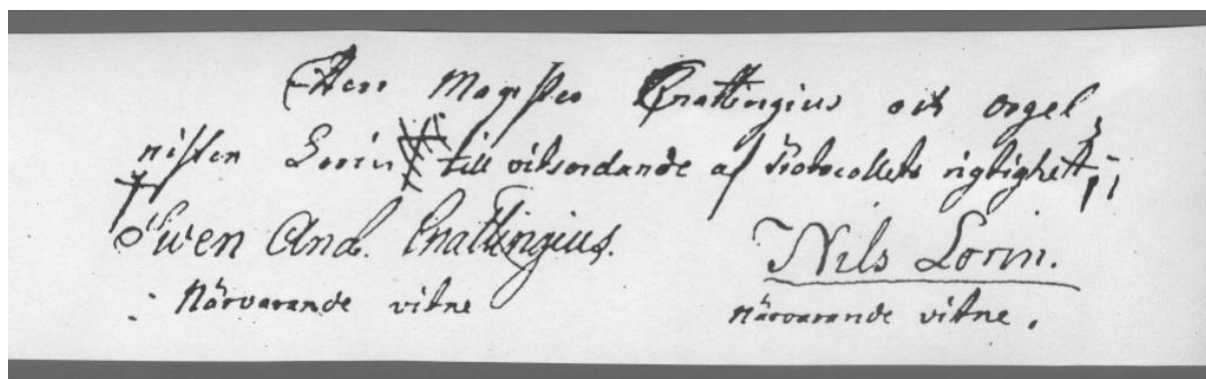 Herr Magister Cnattingius och orgel
nisten Lorin till vitsordande af Protocollets rigtighet
Swen And. Cnattingius.
Närvarande vitne
Nils Lorin.
närvarande vitne.